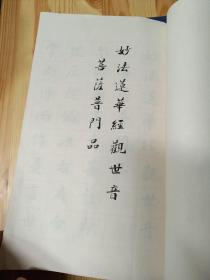 妙法蓮華經觀世音
菩薩普門品